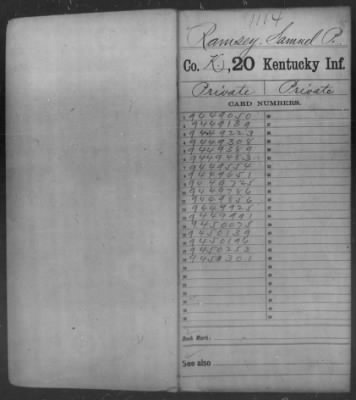 1114
Ramsey, Samuel P.
Co. K, 20 Kentucky Inf.
Private | Private
CARD NUMBERS.
1 9449050
2 9449139
3 9449223
4 9449308
5 9449389
6 9449483
7 9449554
8 9449651
9 9449725
10 9449786
11 9449856
12 9449925
13 9449991
14 9450075
15 9450139
16 9450196
17 9450253
18 9450301
Book Mark:
See also